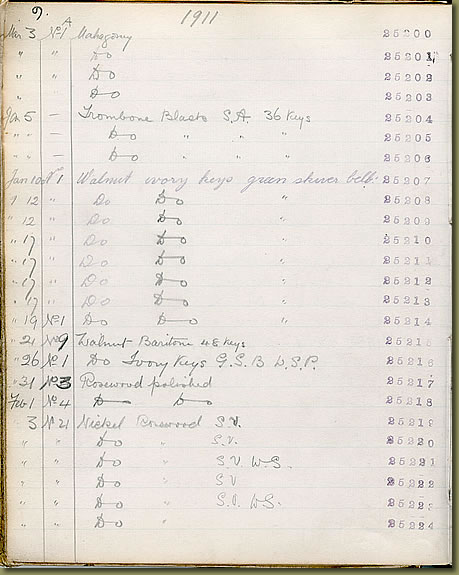 9. 1911
A
3 No 1 Mahogany 25200
" " Do 25201
" " Do 25202
" Do 25203
Jan 5 — Trombone Blasto S.A. 36 Keys 25204
" " — Do " " " 25205
" " — Do " " " 25206
Jan 10 No 1 Walnut ivory keys green skiver bell 25207
1 12 " Do Do " 25208
" 12 " Do Do " 25209
" 17 " Do Do " 25210
" 17 " Do Do " 25211
" 17 " Do Do " 25212
" 17 " Do Do " 25213
" 19 No 1 Do Do " 25214
" 21 No 9 Walnut Baritone 48 Keys 25215
" 26 No 1 Do Ivory Keys G.S.B D.S.P. 25216
" 31 No 3 Rosewood polished 25217
Feb 1 No 4 Do Do 25218
3 No 21 Nickel Rosewood S.V. 25219
" " Do " S.V. 25220
" " Do " S.V. W.S. 25221
" " Do " S.V 25222
" " Do " S.V. W.S. 25223
" " Do " 25224